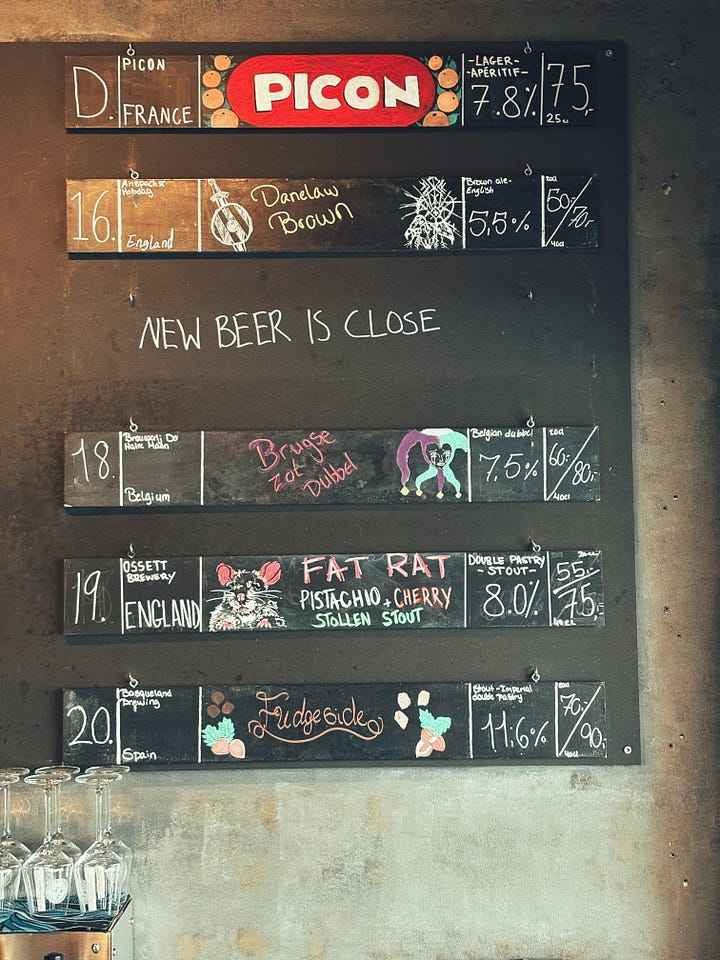 D.
PICON
FRANCE
PICON
-LAGER-
APÉRITIF-
7.8%
75,-
25cl
16.
Anspach &
Hobday
England
Danelaw
Brown
Brown ale-
English
5,5%
20cl
50/70,-
40cl
NEW BEER IS CLOSE
18.
Brouwerij De
Halve Maan
Belgium
Brugse
Zot
Dubbel
Belgian dubbel
7,5%
20cl
60/80,-
40cl
19.
OSSETT
BREWERY
ENGLAND
FAT RAT
PISTACHIO + CHERRY
STOLLEN STOUT
DOUBLE PASTRY
-STOUT-
8.0%
55/75,-
20.
Basqueland
Brewing
Spain
Fudgeside
Stout-Imperial
double Pastry
11,6%
20cl
70/90,-
40cl